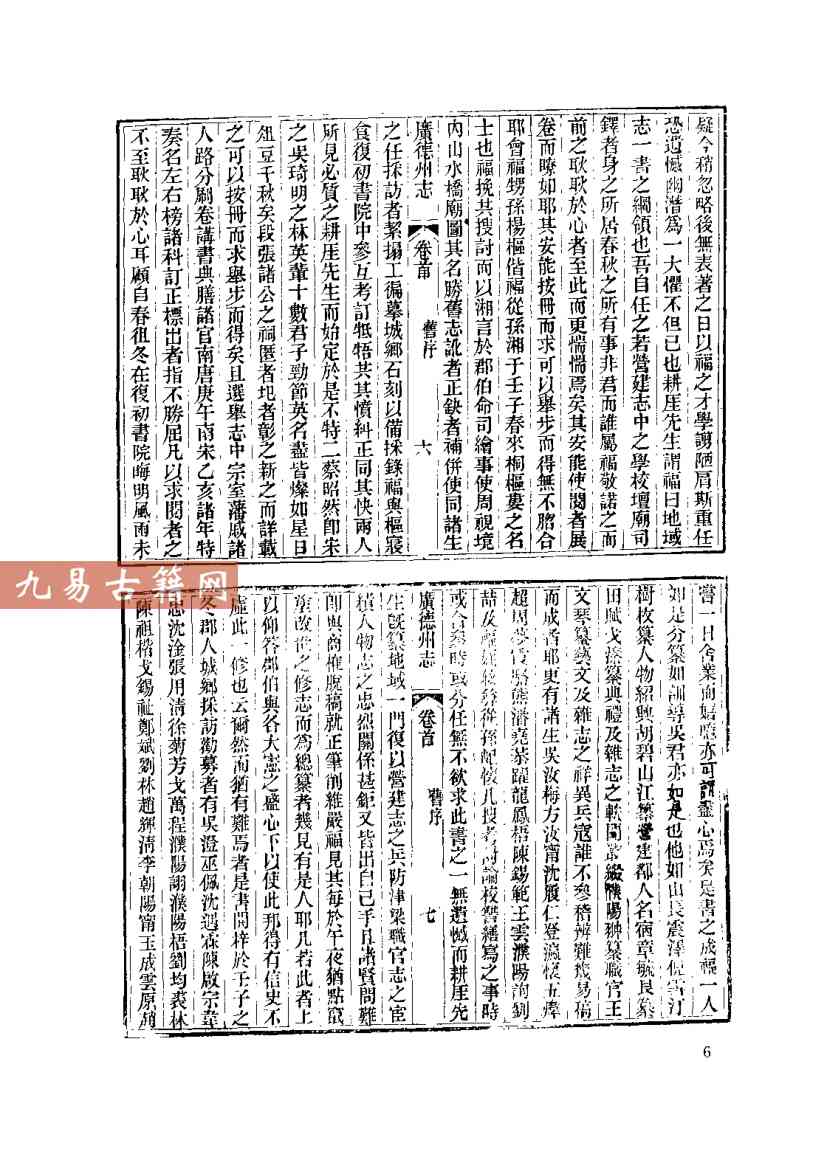 疑今稍忽略後無表著之日以福之才學謭陋肩斯重任
恐遺憾幽潛爲一大懼不但已也耕厓先生謂福曰地域
志一書之綱領也吾自任之若營建志中之學校壇廟司
鐸者身之所居春秋之所有事非君而誰屬福敬諾之而
前之耿耿於心者至此而更惴惴焉矣其安能使閱者展
卷而瞭如耶其安能按冊而求可以舉步而得無不脗合
耶會福甥孫楊樞偕福從孫湘于壬子春來桐樞婁之名
士也福挽共搜討而以湘言於郡伯命司繪事使周視境
內山水橋廟圖其名勝舊志訛者正缺者補併使同諸生
廣德州志 卷首 舊序 六
之任採訪者絜搨工徧摹城鄉石刻以備採錄福與樞寢
食復初書院中參互考訂牴牾共其憤糾正同其快兩人
所見必質之耕厓先生而始定於是不特二蔡昭然卽宋
之吳琦明之林英輩十數君子勁節英名盡皆燦如星日
俎豆千秋矣段張諸公之祠匿者圯者彰之新之而詳載
之可以按冊而求舉步而得矣且選舉志中宗室藩戚諸
人路分刷卷講書典膳諸官南唐庚午南宋乙亥諸年特
奏名左右榜諸科訂正標出者指不勝屈凡以求閱者之
不至耿耿於心耳顧自春徂冬在復初書院晦明風雨未
嘗一日舍業而嬉噫亦可謂盡心焉矣是書之成福一人
如是分纂如訓導吳君亦如是也他如山長震澤倪雪汀
樹枚纂人物紹興胡碧山江纂營建郡人名宿章毓良纂
田賦戈 纂典禮及雜志之軼聞叢綴濮陽翀纂職官王
文琴纂藝文及雜志之祥異兵寇誰不參稽辨難幾易稿
而成者耶更有諸生吳汝梅方汝甯沈履仁登瀛悷五
超周 賢熊潛堯恭躍龍鳳梧陳錫範王雲濮陽詢劉
喆及福 孫從孫 搜考討論校讐繕寫之事時
或合參時或分任無不欲求此書之一無遺憾而耕厓先
廣德州志 卷首 舊序 七
生旣纂地域一門復以營建志之兵防津梁職官志之宦
績人物志之忠烈關係甚鉅又皆出自己手且諸賢問難
卽與商榷脫稿就正筆削維嚴福見其每於午夜猶點竄
塗改世之修志而爲總纂者幾見有是人耶凡若此者上
以仰答郡伯與各大憲之盛心下以使此邦得有信史不
虛此一修也云爾然而猶有難焉者是書開梓於壬子之
冬郡人城鄉採訪勸募者有吳澄巫佩沈遇霖陳啟宗韋
忠沈淦張用淸徐菊芳戈萬程濮陽詡濮陽梧劉均裘林
陳祖楷戈錫祉鄭斌劉林趙經淸李朝陽甯玉成雲原趙
九易古籍网
6